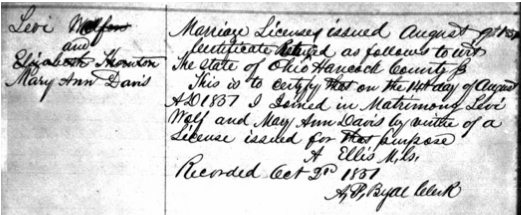 Levi Wolf
and
Elizabeth Thornton
Mary Ann Davis
Marriage License issued August 9th 1837
Certificate as follows to wit
The State of Ohio Hancock County ss
This is to certify that on the 14th day of August
AD 1837 I Joined in Matrimony Levi
Wolf and Mary Ann Davis by virtue of a
License issued for that purpose
A Ellis M,G,
Recorded Oct 2nd 1837
A, P, Byal Clerk